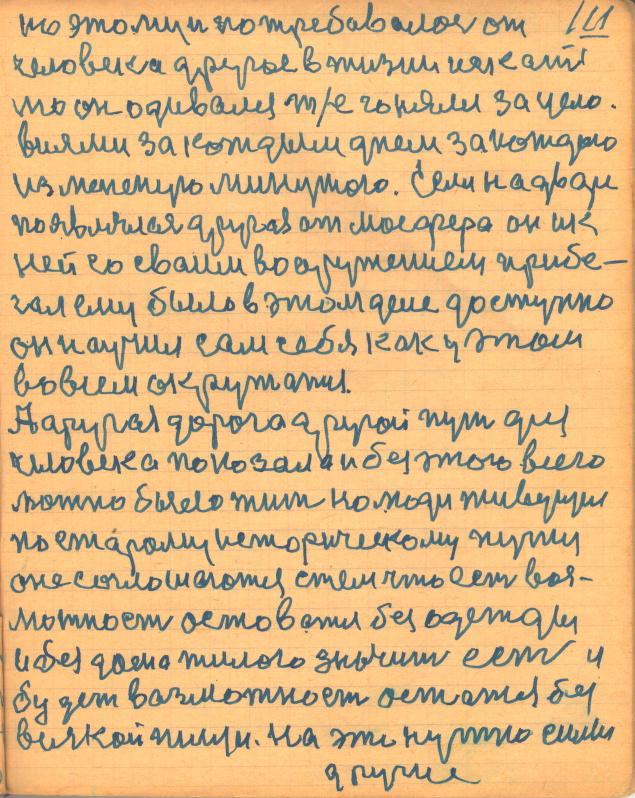 111
по этому и по требовалос от
человека другое в жизни искат
то он одивался т/е гоняли за чело.
виями за кождым днем за кождою
изменную минутою. Если на дваре
появлялся другая от мосфера он и к
ней со сваим вооружением прибе-
гал ему было в этом деле доступно
он научил сам себя как у этом
во всем окружатся.
А другая дорога другой пут для
человека показала и без этого всего
можно было жит но люди живущие
по старому историческому пути
оне соглошаются с тем что ест воз-
можност остоватся без одежды
и без дома жилого значит ест и
будет вазможност остатся без
всякой пищи. На это нужно силы
другие